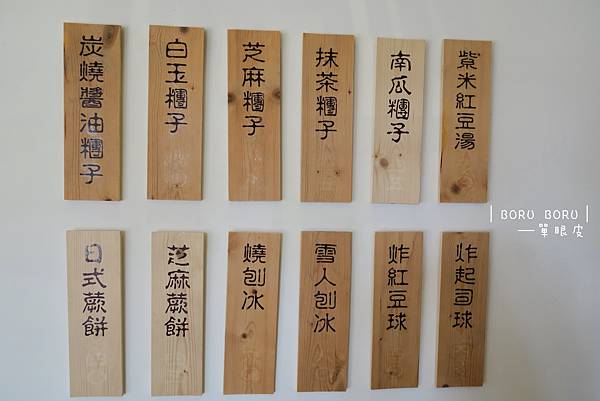 炭燒醬油糰子
白玉糰子
芝麻糰子
抹茶糰子
南瓜糰子
紫米紅豆湯
日式蕨餅
芝麻蕨餅
燒刨冰
雪人刨冰
炸紅豆球
炸起司球
| BORU BORU |
一單眼皮